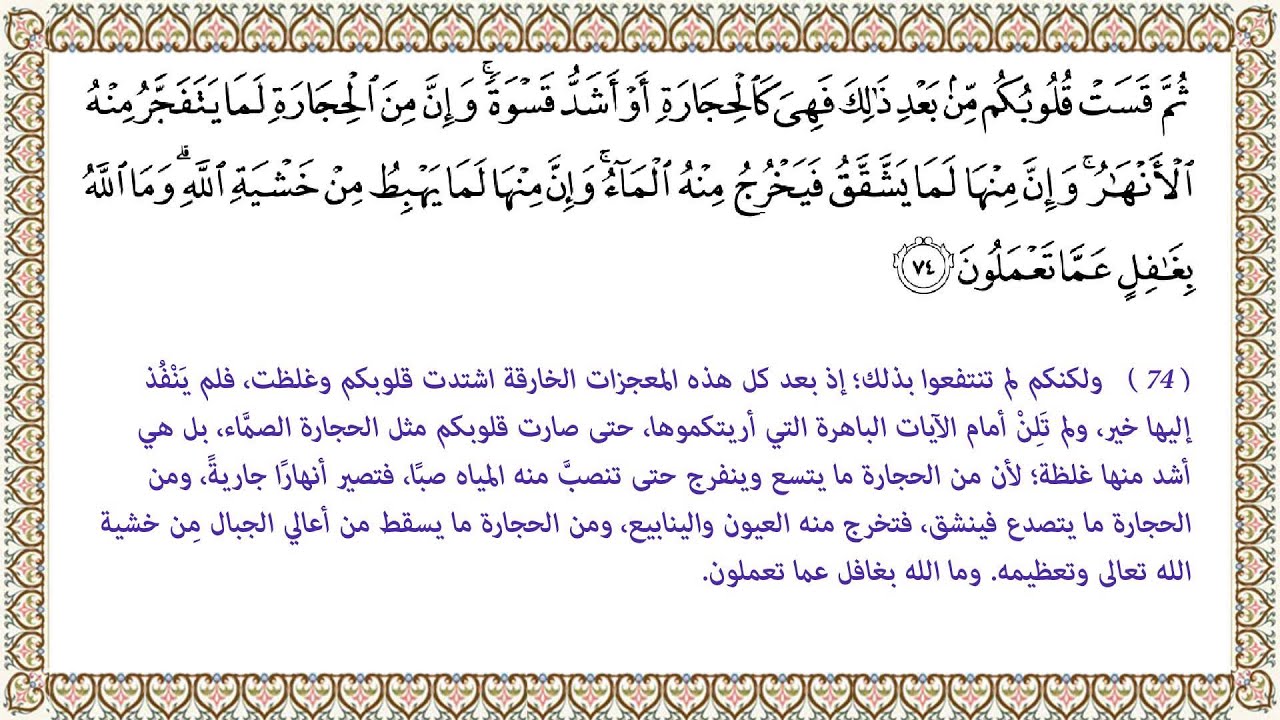 ثُمَّ قَسَتْ قُلُوبُكُم مِّنۢ بَعْدِ ذَٰلِكَ فَهِىَ كَٱلْحِجَارَةِ أَوْ أَشَدُّ قَسْوَةً ۚ وَإِنَّ مِنَ ٱلْحِجَارَةِ لَمَا يَتَفَجَّرُ مِنْهُ
ٱلْأَنْهَـٰرُ ۚ وَإِنَّ مِنْهَا لَمَا يَشَّقَّقُ فَيَخْرُجُ مِنْهُ ٱلْمَآءُ ۚ وَإِنَّ مِنْهَا لَمَا يَهْبِطُ مِنْ خَشْيَةِ ٱللَّهِ ۗ وَمَا ٱللَّهُ
بِغَـٰفِلٍ عَمَّا تَعْمَلُونَ ٧٤
( 74 ) ولكنكم لم تنتفعوا بذلك؛ إذ بعد كل هذه المعجزات الخارقة اشتدت قلوبكم وغلظت، فلم يَنْفُذ
إليها خير، ولم تَلِنْ أمام الآيات الباهرة التي أريتكموها، حتى صارت قلوبكم مثل الحجارة الصمَّاء، بل هي
أشد منها غلظة؛ لأن من الحجارة ما يتسع وينفرج حتى تنصبَّ منه المياه صبًّا، فتصير أنهارًا جاريةً، ومن
الحجارة ما يتصدع فينشق، فتخرج منه العيون والينابيع، ومن الحجارة ما يسقط من أعالي الجبال مِن خشية
الله تعالى وتعظيمه. وما الله بغافل عما تعملون.